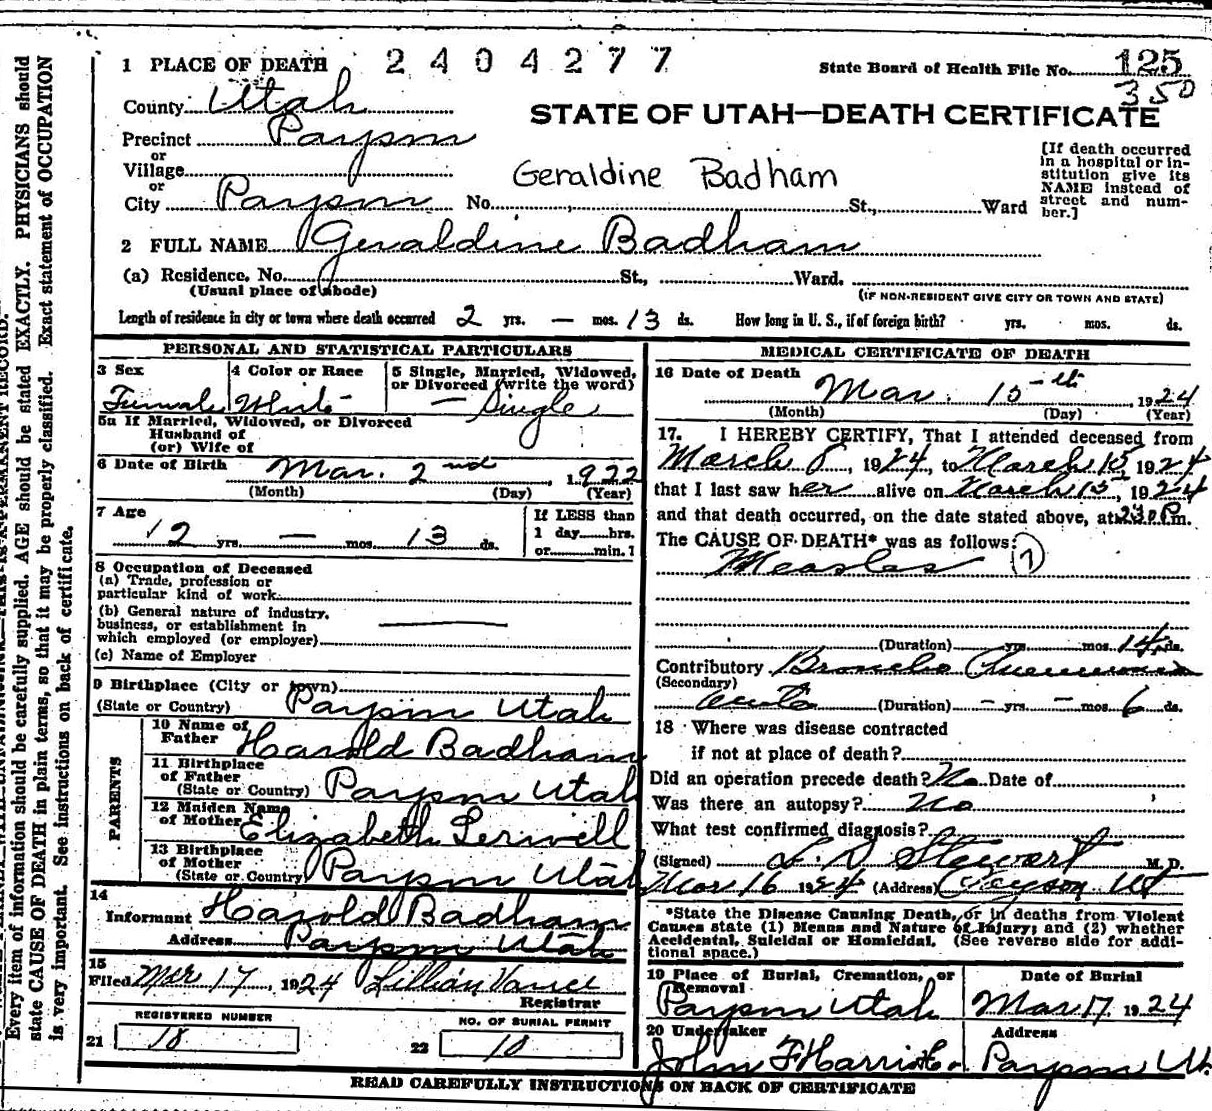 1 PLACE OF DEATH 2404277 State Board of Health File No. 125
350
County Utah
STATE OF UTAH—DEATH CERTIFICATE
Precinct Payson
or
Village
or
City Payson No. St., Ward
Geraldine Badham
[If death occurred
in a hospital or in-
stitution give its
NAME instead of
street and num-
ber.]
2 FULL NAME Geraldine Badham
(a) Residence, No. St., Ward.
(Usual place of abode) (IF NON-RESIDENT GIVE CITY OR TOWN AND STATE)
Length of residence in city or town where death occurred 2 yrs. — mos. 13 ds. How long in U. S., if of foreign birth? yrs. mos. ds.
PERSONAL AND STATISTICAL PARTICULARS
3 Sex
Female
4 Color or Race
White
5 Single, Married, Widowed,
or Divorced (write the word)
— Single
5a If Married, Widowed, or Divorced
Husband of
(or) Wife of
6 Date of Birth Mar. 2nd, 1922
(Month) (Day) (Year)
7 Age
2 yrs. — mos. 13 ds.
If LESS than
1 day hrs.
or min.?
8 Occupation of Deceased
(a) Trade, profession or
particular kind of work
(b) General nature of industry,
business, or establishment in
which employed (or employer)
(c) Name of Employer
9 Birthplace (City or town)
(State or Country) Payson Utah
PARENTS
10 Name of
Father Harold Badham
11 Birthplace
of Father
(State or Country) Payson Utah
12 Maiden Name
of Mother Elizabeth
13 Birthplace
of Mother
(State or Country) Payson Utah
14
Informant Harold Badham
Address Payson Utah
15
Filed Mar 17, 1924 Lillian Vance
Registrar
REGISTERED NUMBER
21 18
NO. OF BURIAL PERMIT
22 10
MEDICAL CERTIFICATE OF DEATH
16 Date of Death
Mar. 15th, 1924
(Month) (Day) (Year)
17. I HEREBY CERTIFY, That I attended deceased from
March 8, 1924, to March 15, 1924
that I last saw her alive on March 15, 1924
and that death occurred, on the date stated above, at 2:30 P.m.
The CAUSE OF DEATH* was as follows: 7
Measles
(Duration) yrs. mos. 14 ds.
Contributory Broncho Pneumonia
(Secondary)
acute (Duration) — yrs. — mos. 6 ds.
18 Where was disease contracted
if not at place of death?
Did an operation precede death? No Date of
Was there an autopsy? No
What test confirmed diagnosis?
(Signed) L. D. Stewart M. D.
Mar 16 1924 (Address) Payson Ut
*State the Disease Causing Death, or in deaths from Violent
Causes state (1) Means and Nature of Injury; and (2) whether
Accidental, Suicidal or Homicidal. (See reverse side for addi-
tional space.)
19 Place of Burial, Cremation, or
Removal
Payson Utah
Date of Burial
Mar 17 1924
20 Undertaker
John F Harris Co.
Address
Payson Ut.
READ CAREFULLY INSTRUCTIONS ON BACK OF CERTIFICATE
Every item of information should be carefully supplied. AGE should be stated EXACTLY. PHYSICIANS should
state CAUSE OF DEATH in plain terms, so that it may be properly classified. Exact statement of OCCUPATION
is very important. See instructions on back of certificate.